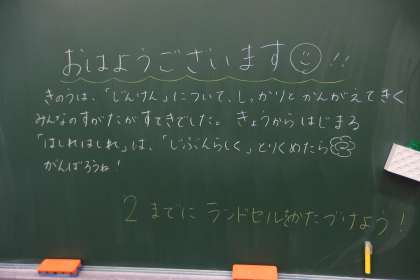 おはようございます!!
きのうは、「じんけん」について、しっかりとかんがえてきく
みんなのすがたがすてきでした。きょうからはじまる
「はしれはしれ」は、「じぶんらしく」とりくめたら
がんばろうね!
2までにランドセルをかたづけよう!